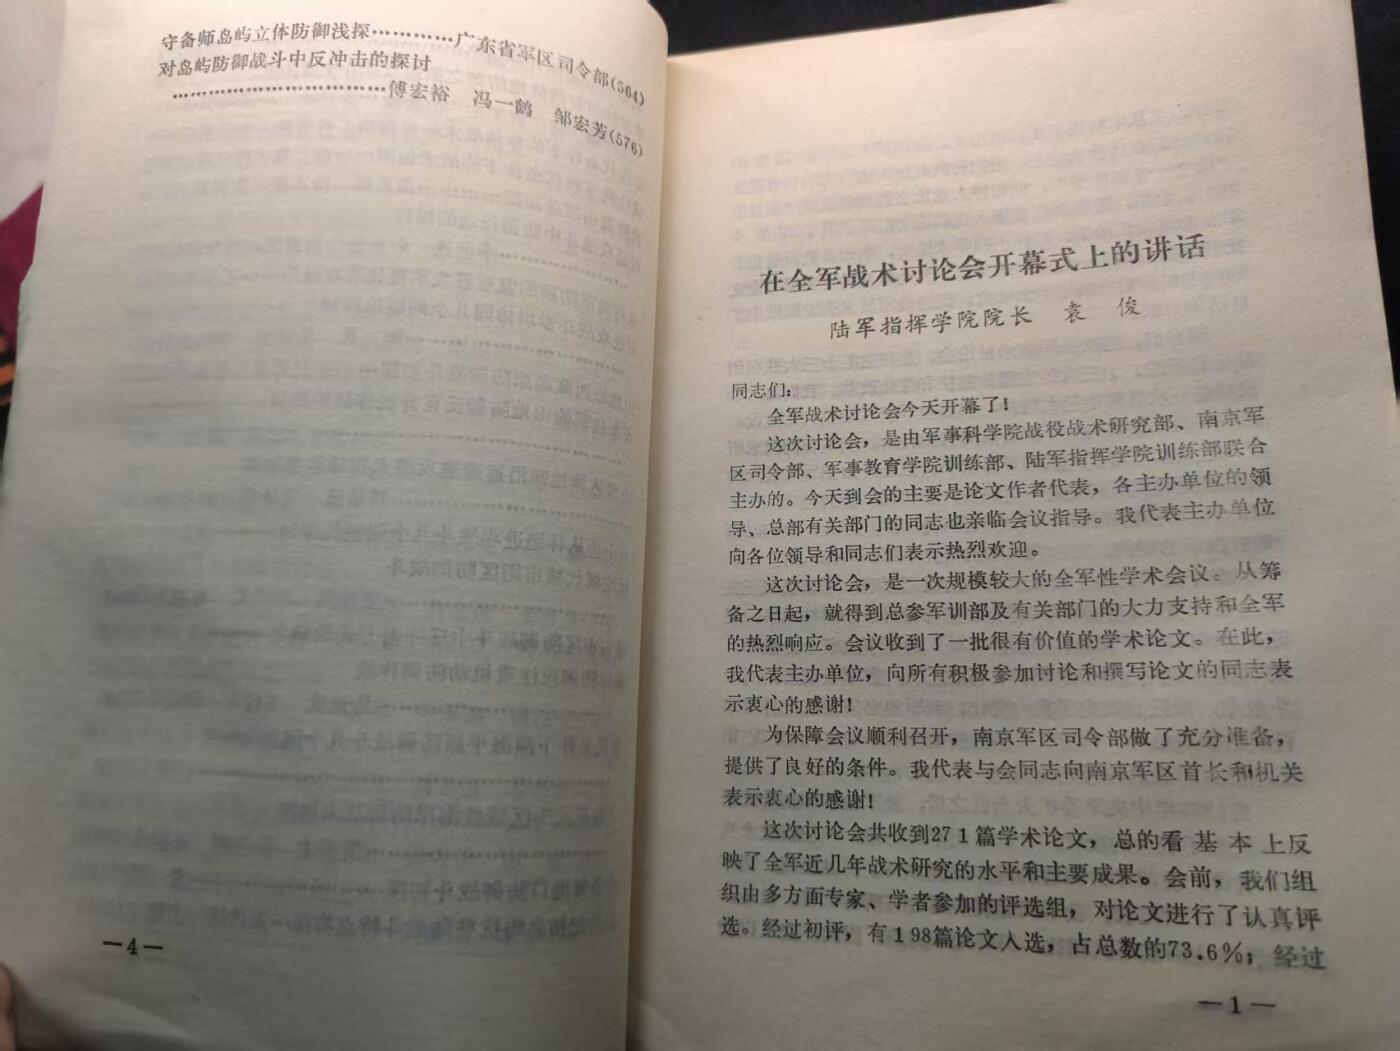 守备师岛屿立体防御浅探…………广东省军区司令部(564)
对岛屿防御战斗中反冲击的探讨
……………………………傅宏裕 冯一鹤 邹宏芳(576)
—4—
在全军战术讨论会开幕式上的讲话
陆军指挥学院院长 袁 俊
同志们：
全军战术讨论会今天开幕了！
这次讨论会，是由军事科学院战役战术研究部、南京军
区司令部、军事教育学院训练部、陆军指挥学院训练部联合
主办的。今天到会的主要是论文作者代表，各主办单位的领
导、总部有关部门的同志也亲临会议指导。我代表主办单位
向各位领导和同志们表示热烈欢迎。
这次讨论会，是一次规模较大的全军性学术会议。从筹
备之日起，就得到总参军训部及有关部门的大力支持和全军
的热烈响应。会议收到了一批很有价值的学术论文。在此，
我代表主办单位，向所有积极参加讨论和撰写论文的同志表
示衷心的感谢！
为保障会议顺利召开，南京军区司令部做了充分准备，
提供了良好的条件。我代表与会同志向南京军区首长和机关
表示衷心的感谢！
这次讨论会共收到271篇学术论文，总的看基本上反
映了全军近几年战术研究的水平和主要成果。会前，我们组
织由多方面专家、学者参加的评选组，对论文进行了认真评
选。经过初评，有198篇论文入选，占总数的73.6%；经过
—1—